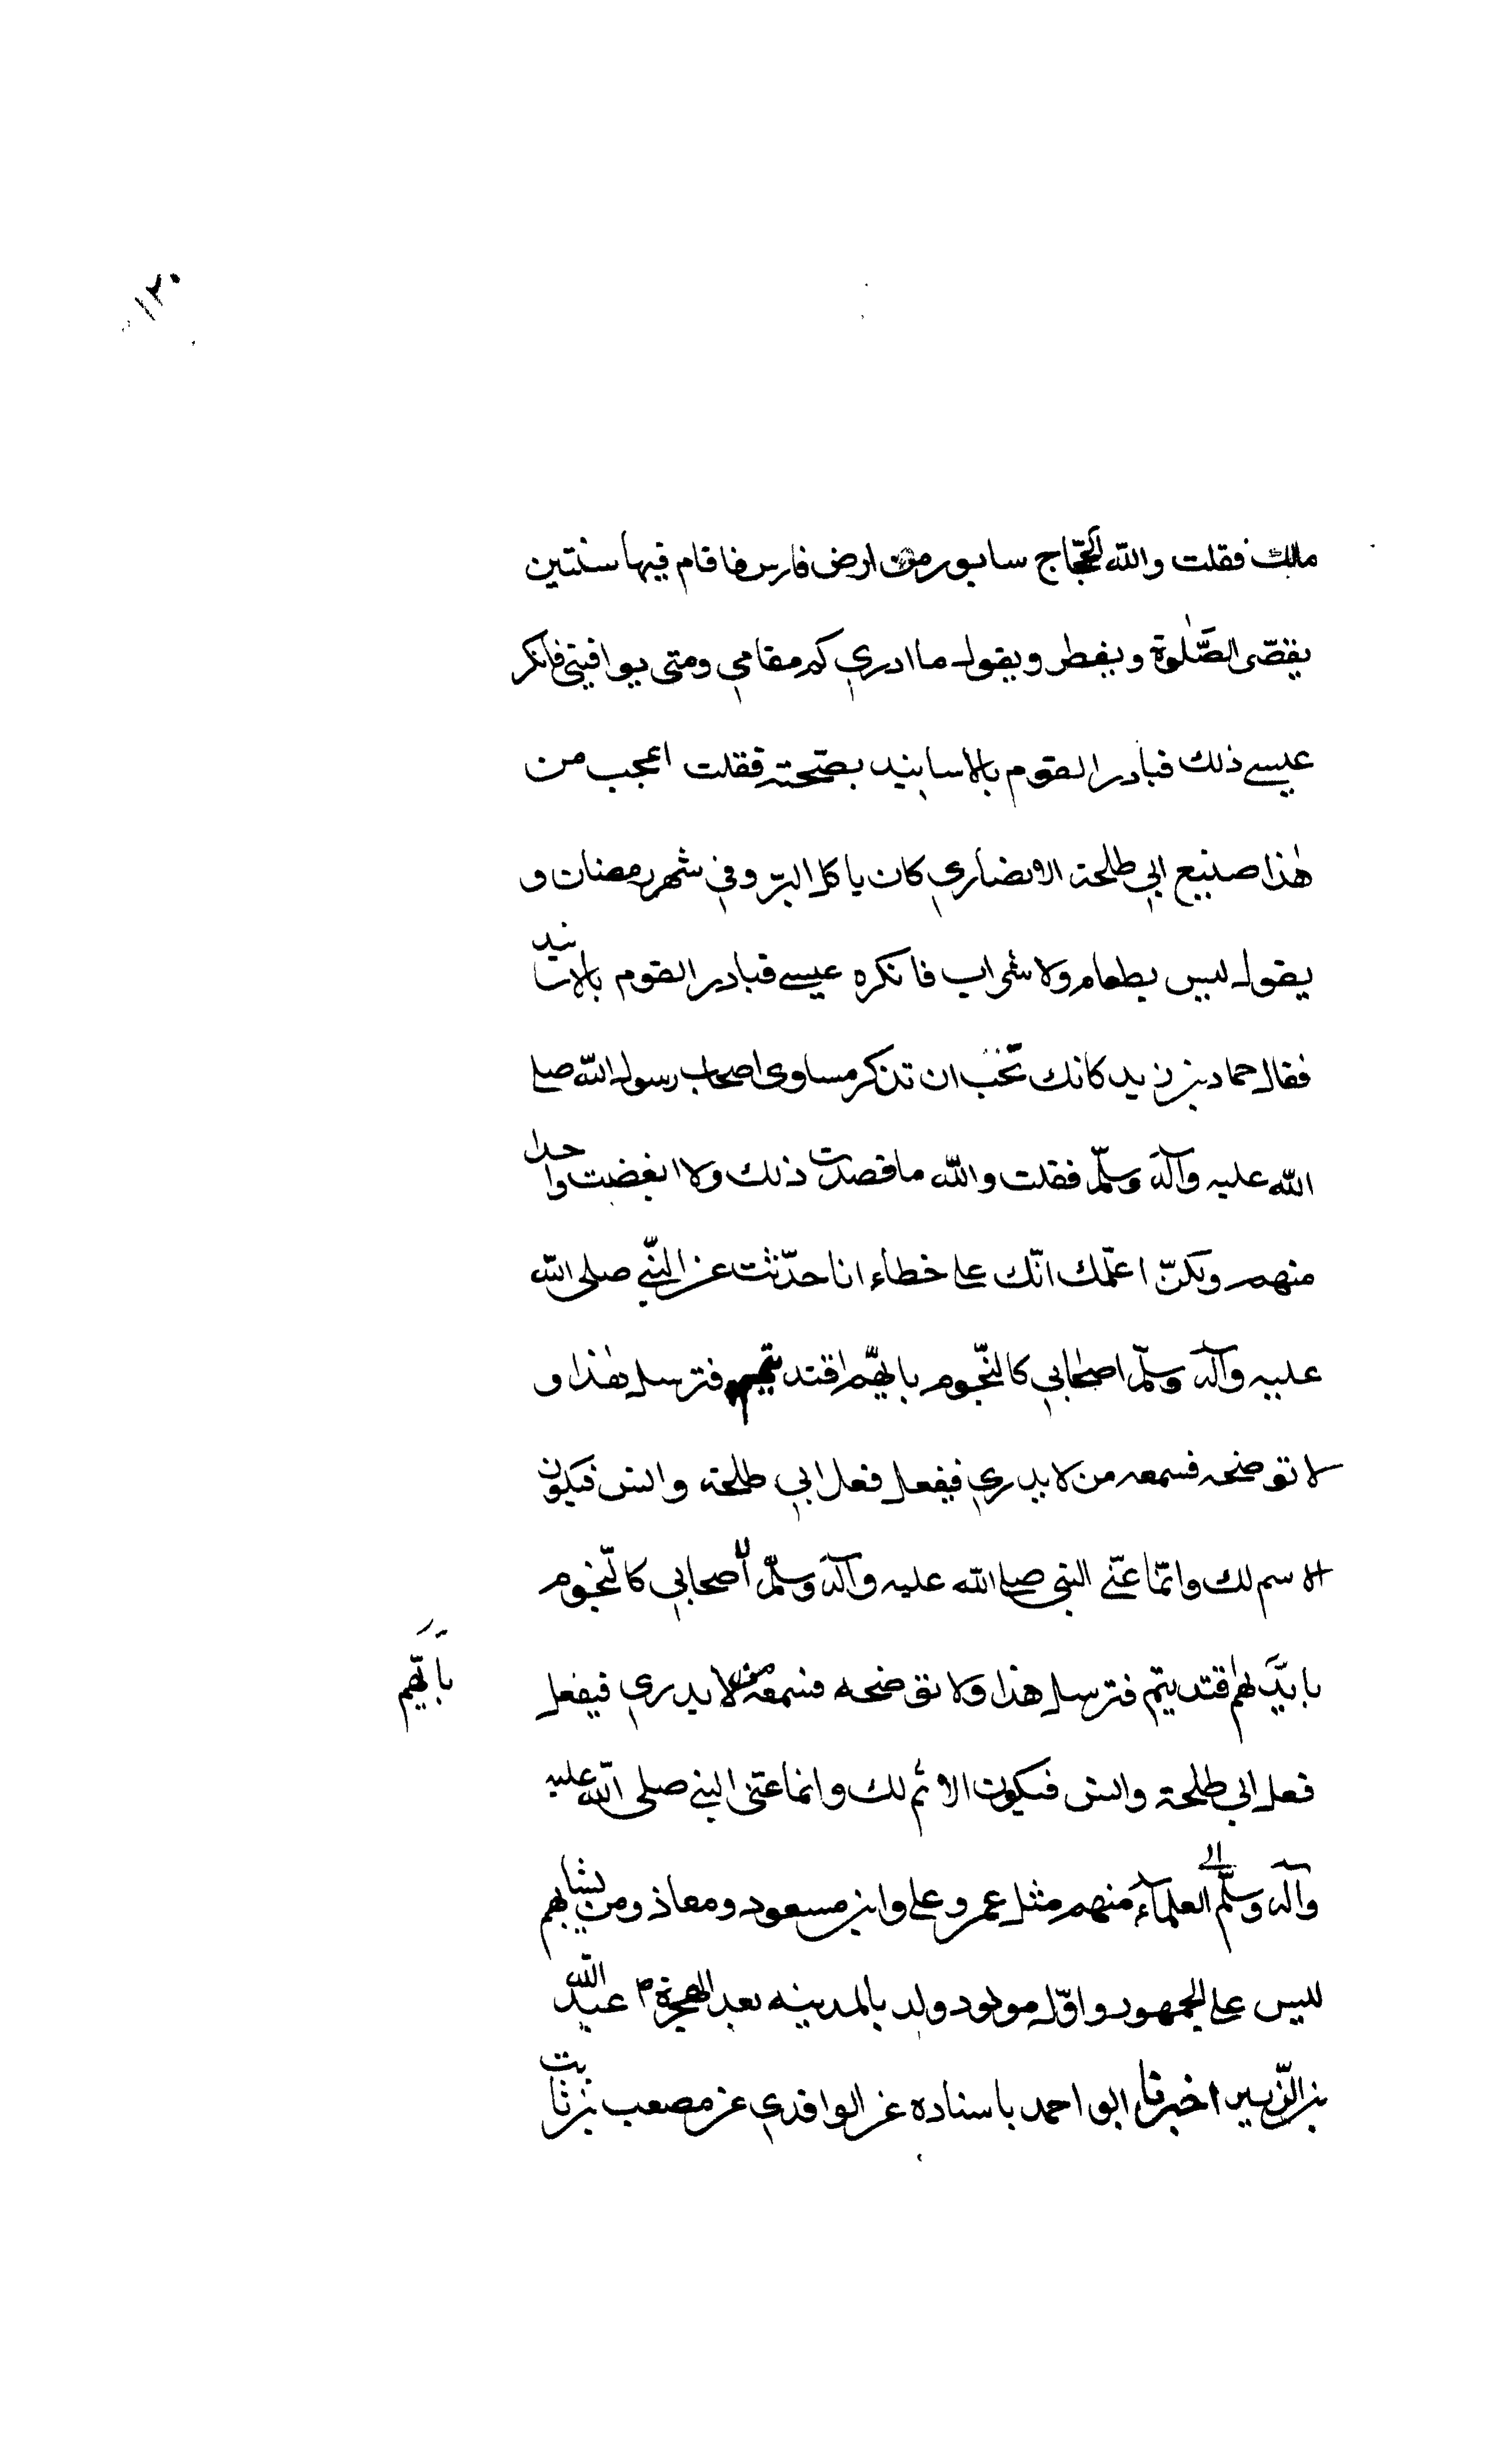 ١٢٠
ملك فقلت والله للحجّاج سابور من ارض فارس فاقام فيها سنتين
يقصّى الصّلٰوة ويفطر ويقول ما ادري كم مقامي ومتى يوافيني فانكر
عيسے ذلك فبادر القوم بالاسانيد بصحته فقلت اعجب من
هٰذا صنيع ابي طلحة الانصاري كان ياكل البرّ وفي شهر رمضان و
يقول ليس بطعام ولا شراب فانكره عيسے فبادر القوم بالاسانيد
فقال حماد بن زيد كانك تحب ان تذكر مساوى اصحاب رسول الله صلى
الله عليه وآله وسلّم فقلت والله ما قصدت ذلك ولا ابغضت واحدا
منهم ولكنّ اعلمك انّك على خطاء انا حدّثت عن النّبي صلى الله
عليه وآله وسلّم اصحابي كالنّجوم بايّهم اقتديتم فترسل هٰذا و
لا توضحه فسمعه من لا يدري فيفعل فعل ابي طلحة وانس فيكون
الاسم لك وانّما عنّى النبي صلى الله عليه وآله وسلّم اصحابي كالنّجوم
بايّهم اقتديتم فترسل هذا ولا توضحه فسمعه من لا يدري فيفعل
بايّهم
فعل ابي طلحة وانس فيكون الاثم لك وانما عنى النبي صلى الله عليه
وآله وسلّم الى العلمآء منهم مثل عمر وعلي وابن مسعود ومعاذ ومن يشابهم
ليس على الجمهور واوّل مولود ولد بالمدينه بعد الهجرة عبد الله
بن الزّبير اخبرنا ابو احمد باسناده عن الواقدي عن مصعب بن ثابت